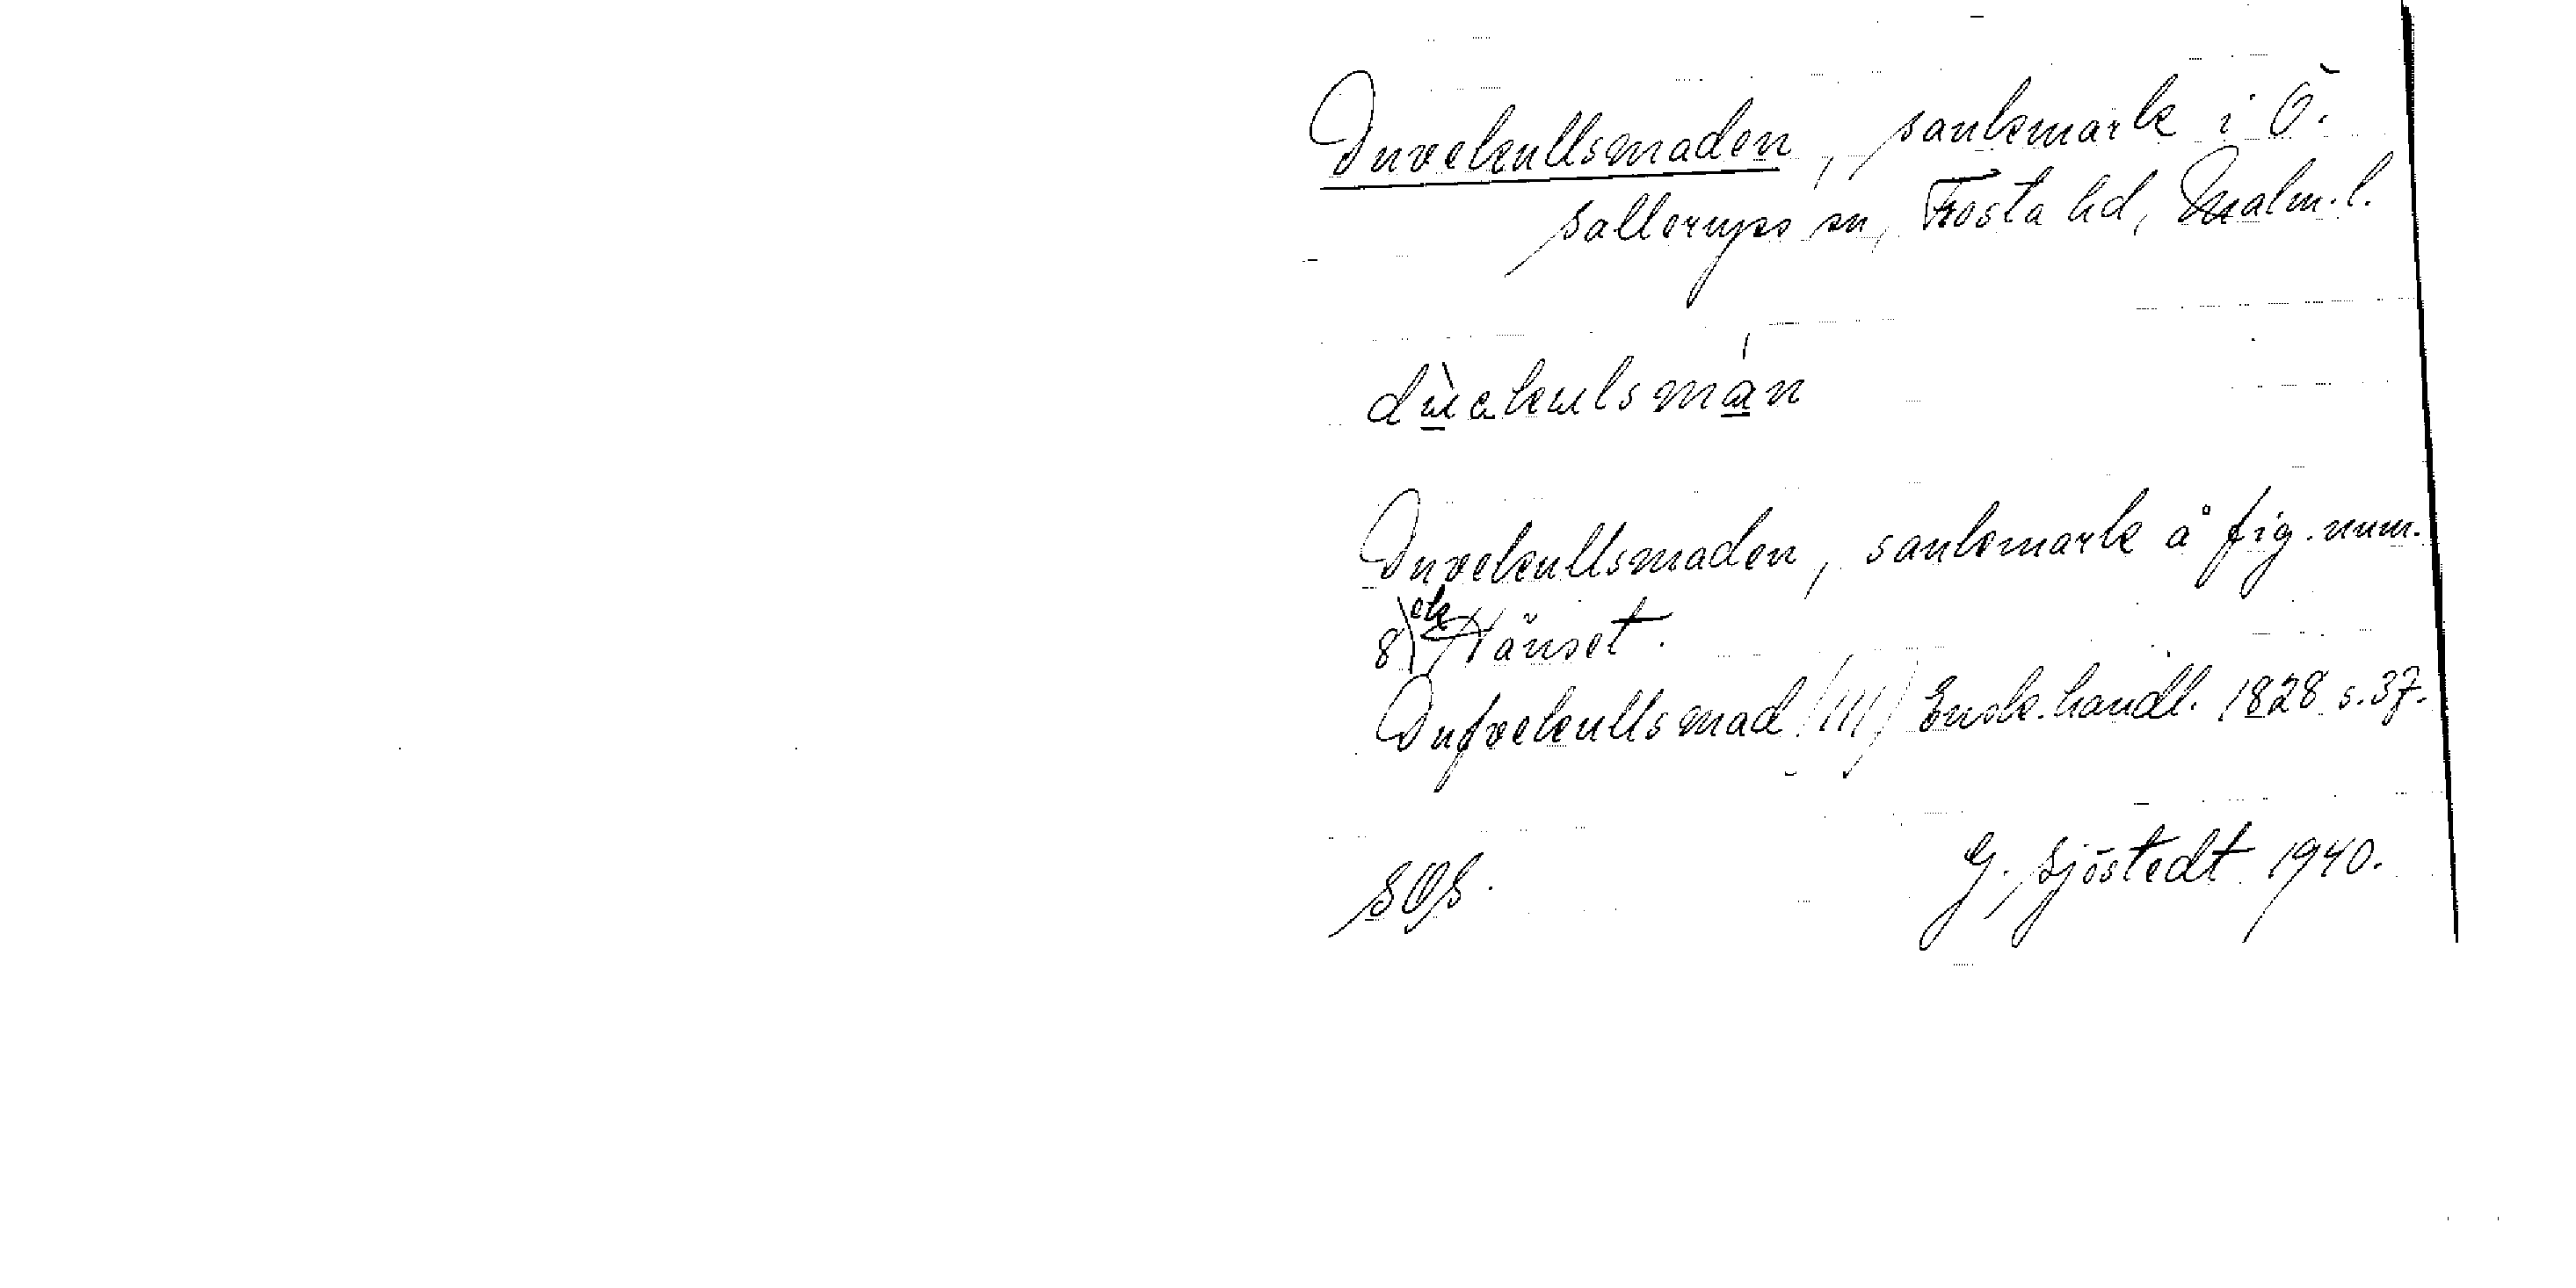 Duvekullsmaden, sankmark i Ö.
Sallerups sn, Frosta hd, Malm.l.
dùekulsmán
Duvekullsmaden, sankmark å fig. num.
8 ek Hänset.
Dufvekullsmad (III) Ensk. handl. 1828 s. 37.
SOS. G. Sjöstedt 1940.